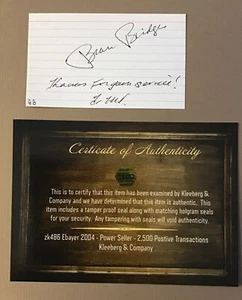 Beau Bridges
BB
Certicate of Authenticity
This is to certify that this item has been examined by Kleeberg &
Company and we have determined that this item is authentic. This
item includes a tamper proof seal along with matching holgram seals
for your security. Any tampering with seals will void authenticity.
zk486 Ebayer 2004 - Power Seller - 2,500 Postive Transactions
Kleeberg & Company